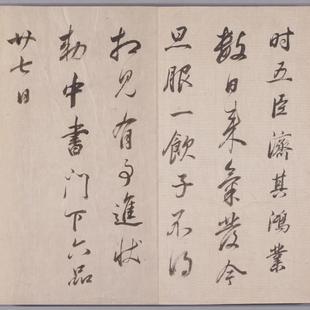 时五臣濟其鴻業
數日来氣發今
旦服一飲子不得
相見有事進狀
勑中書門下六品
廿七日